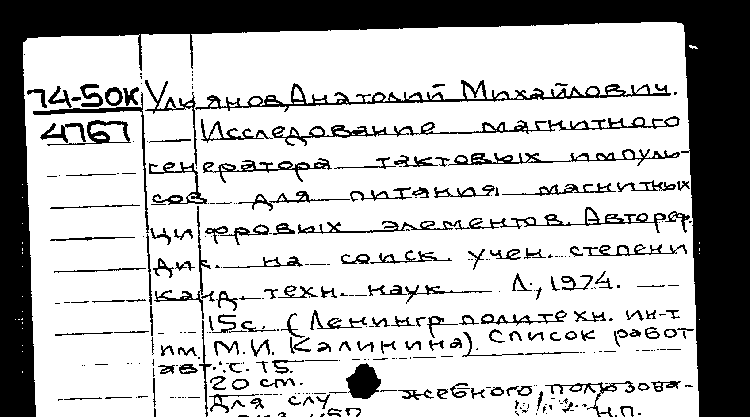 74-50К Ульянов, Анатолий Михайлович.
4767 Исследование магнитного
генератора тактовых импуль-
сов для питания магнитных
цифровых элементов. Автореф.
дис. на соиск. учен. степени
канд. техн. наук. Л., 1974.
15с. (Ленингр. политехн. ин-т
им. М.И. Калинина). Список работ
авт.: с. 15.
20 см.
Для служебного пользова-
Н.П.